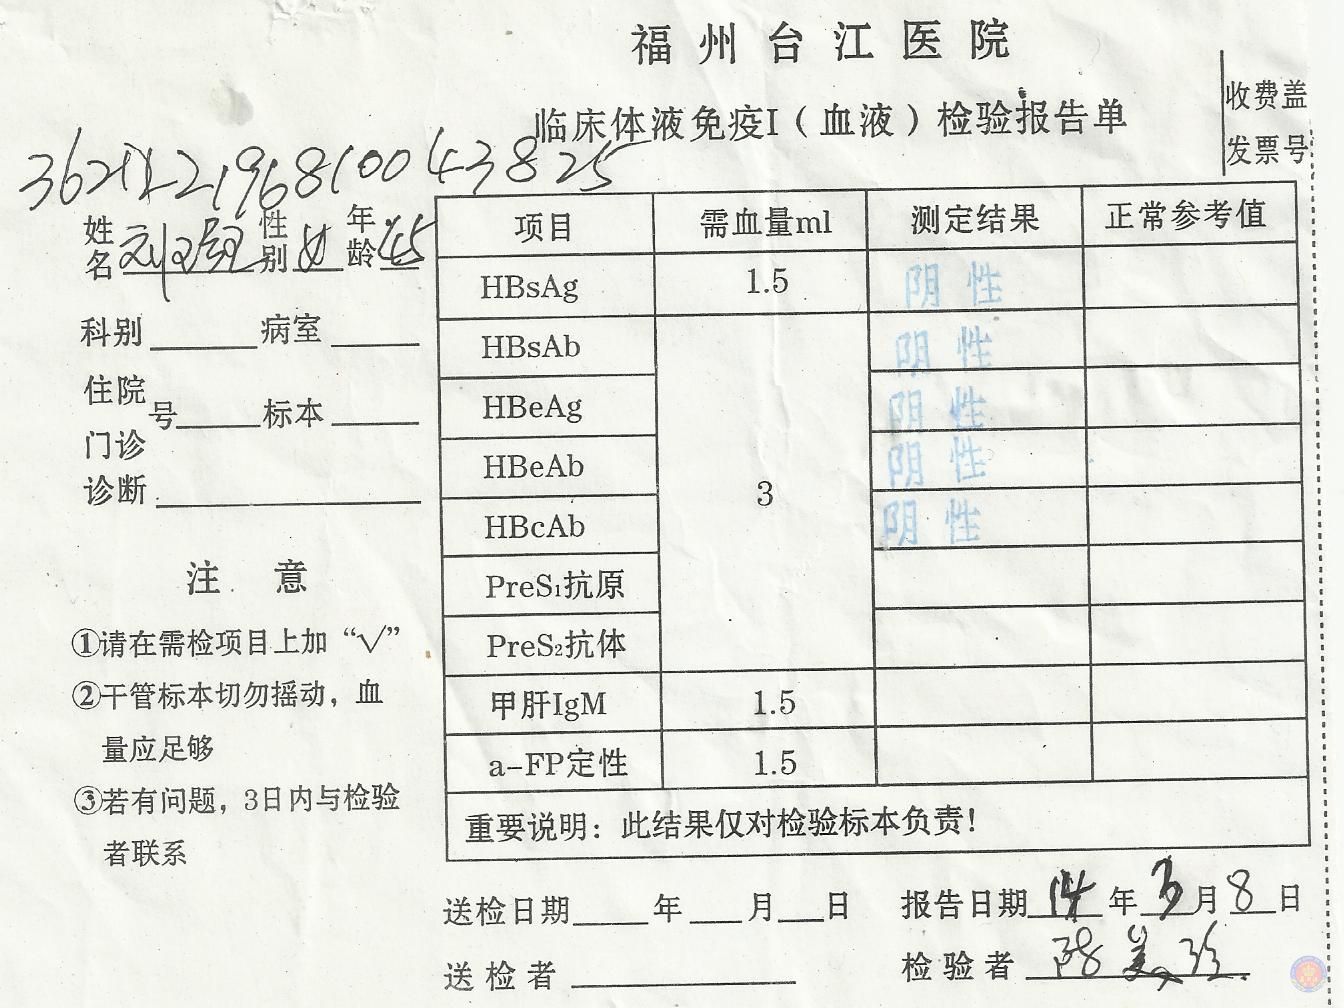 福州台江医院
临床体液免疫I（血液）检验报告单
收费盖
发票号
姓名 性别 女 年龄 45
科别 病室
住院 号 标本
门诊
诊断
注 意
①请在需检项目上加“√”
②干管标本切勿摇动，血
量应足够
③若有问题，3日内与检验
者联系
项目 需血量ml 测定结果 正常参考值
HBsAg 1.5 阴性
HBsAb 阴性
HBeAg 阴性
HBeAb 3 阴性
HBcAb 阴性
PreS₁抗原
PreS₂抗体
甲肝IgM 1.5
a-FP定性 1.5
重要说明：此结果仅对检验标本负责！
送检日期 年 月 日 报告日期 14 年 3 月 8 日
送检者 检验者